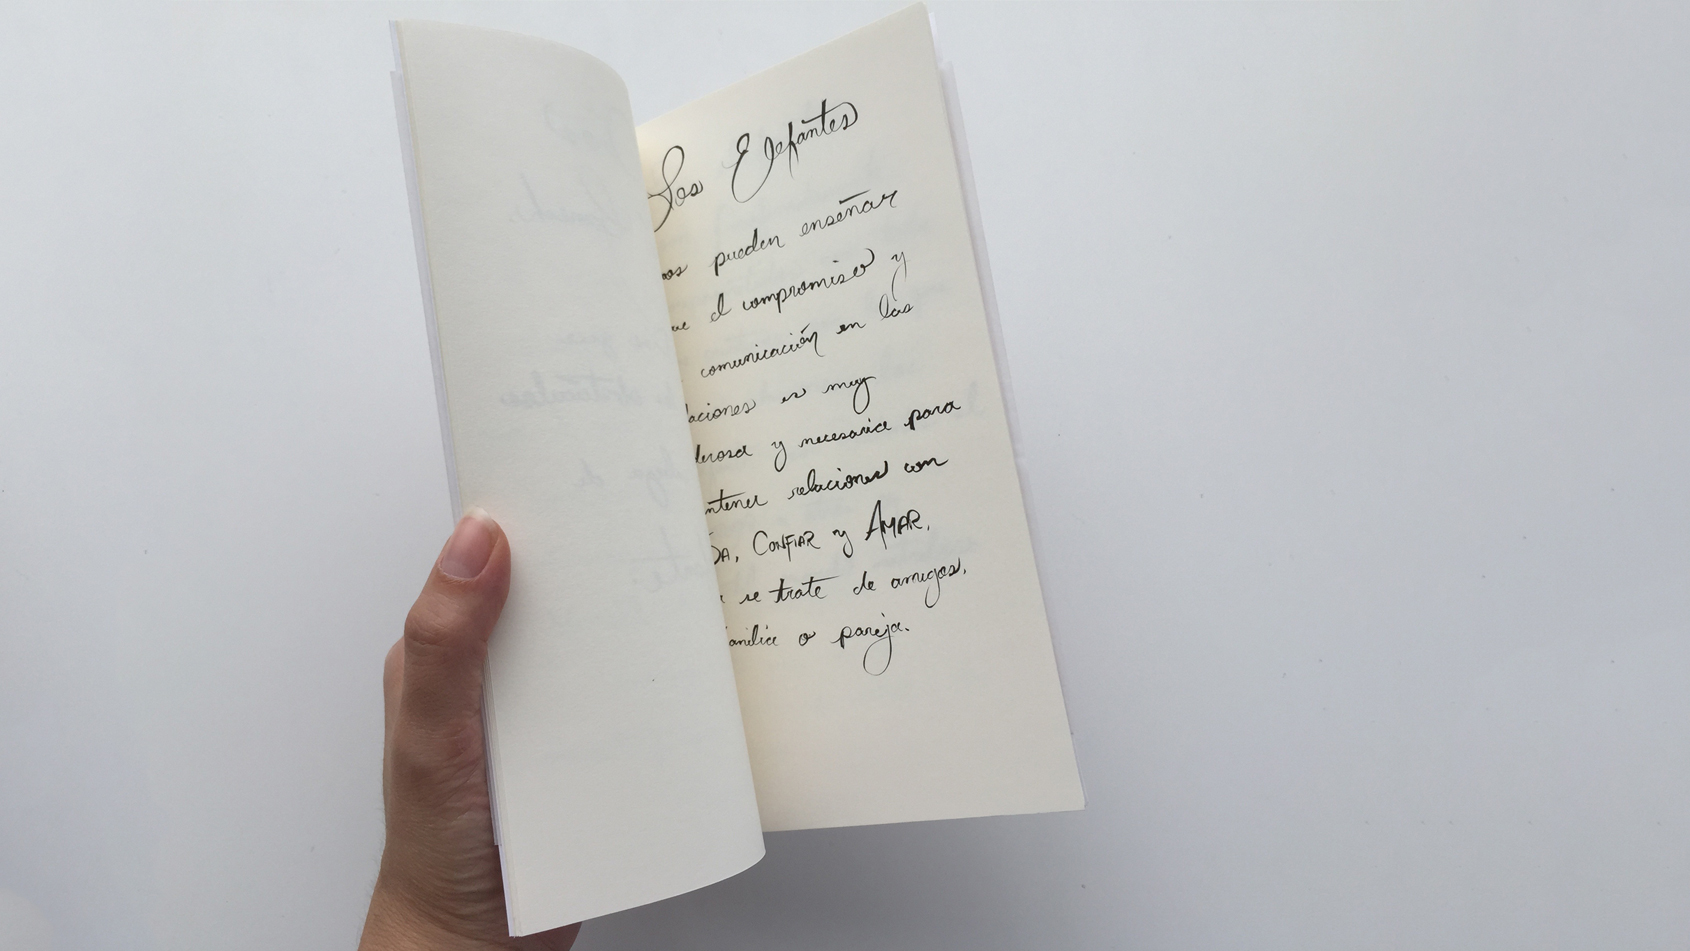 Los Elefantes
nos pueden enseñar
el compromiso y
comunicación en las
laciones es muy
derosa y necesaria para
ntener relaciones con
DA, CONFIAR y AMAR,
se trate de amigos,
familia o pareja.